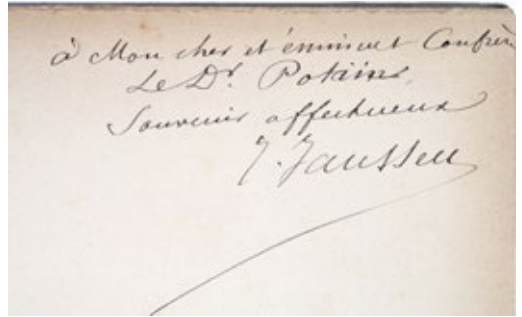 à Mon cher et éminent Confrère
Le Dr. Potain
Souvenir affectueux
J. Janssen